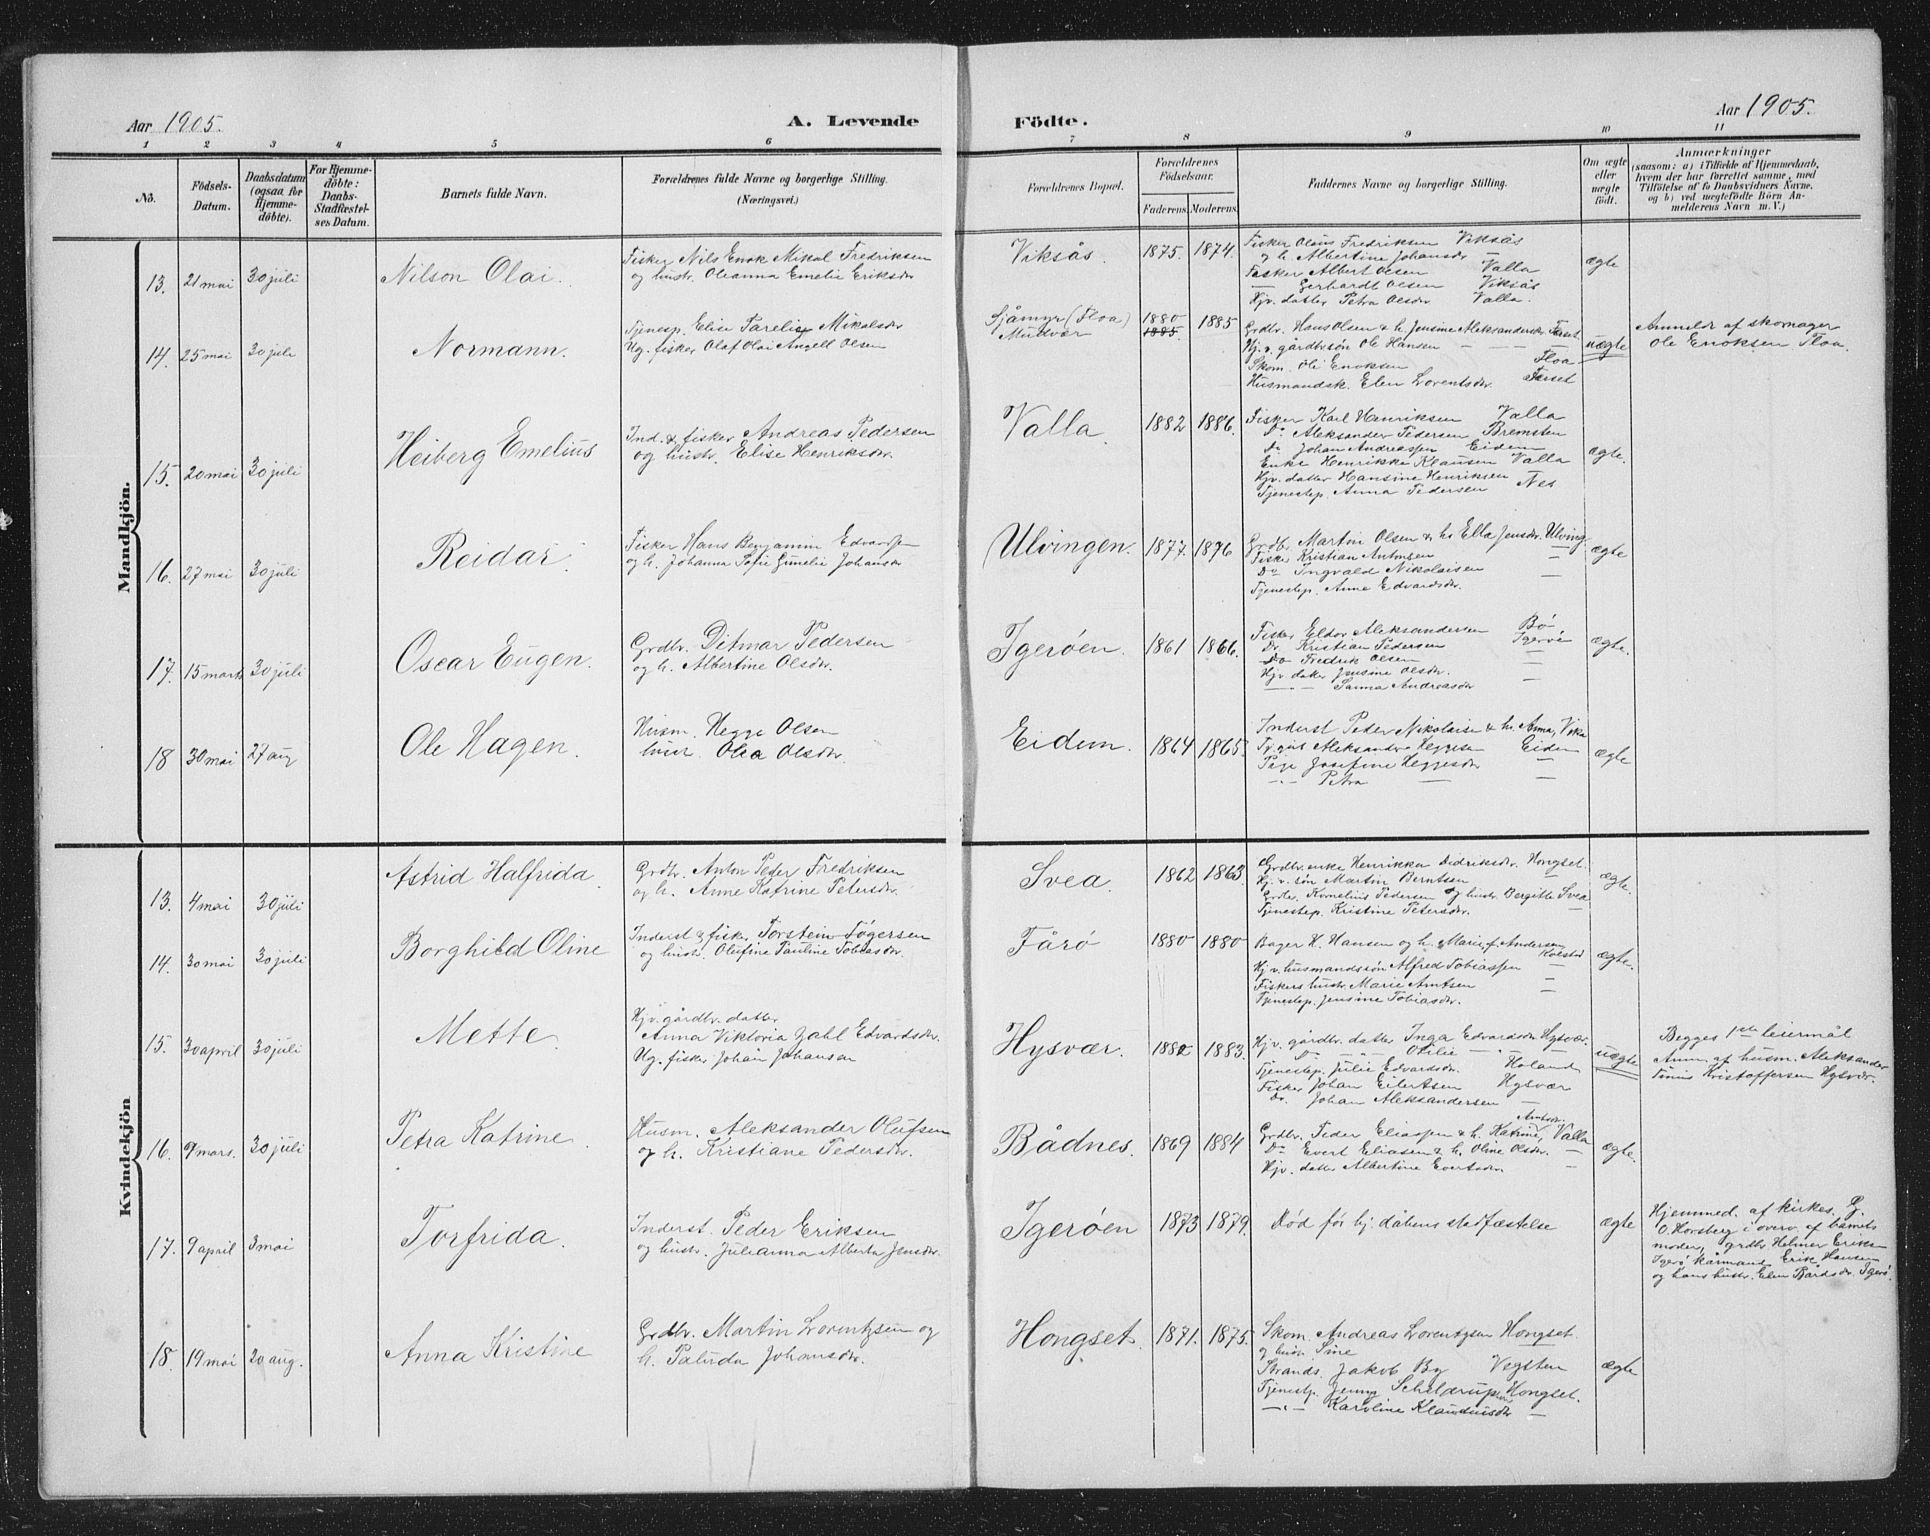 Aar 1905.
A. Levende
Födte.
Aar 1905.
1 2 3 4 5 6 7 8 9 10 11
No.
Födsels-Datum.
Daabsdatum (ogsaa for Hjemme-döbte).
For Hjemme-döbte: Daabs-Stadfæstel-ses Datum.
Barnets fulde Navn.
Forældrenes fulde Navne og borgerlige Stilling.
(Næringsvei.)
Forældrenes Bopæl.
Forældrenes Födselsaar.
Faderens. Moderens.
Faddernes Navne og borgerlige Stilling.
Om ægte eller uægte födt.
Anmærkninger
(saasom: a) i Tilfælde af Hjemmedaab,
hvem der har forrettet samme, med
Tilföielse af to Daabsvidners Navne,
og b) ved uægtefödte Börn An-
melderens Navn m. V.)
Mandkjön.
13. 21 mai 30 juli Nilson Olai.
Fisker Nils Enok Mikal Fredriksen
og hustr. Oleanna Emelie Eriksdr
Viksås 1875. 1874.
Fisker Olaus Fredriksen Viksås
og h. Albertine Johansdr —
Fisker Albert Olsen Valla
— Gerhardt Olsen Viksås
Hjv. datter Petra Olsdr Valla.
ægte
14. 25 mai 30 juli Normann.
Tjenesp. Elise Parelie Mikalsdr
Ug. fisker Olaf Olai Angell Olsen
Sjåmyr (Floa)
Mudvær
1880 1885
1885.
Grdbr. Hans Olsen & h. Jensine Aleksandersdr Færset
Hj. v. gårdbrsön Ole Hansen — — —
Skom. Ole Enoksen Floa
Husmandsk. Elen Lorentsdr. Færset
uægte
Anmeldt af skomager
Ole Enoksen Floa.
15. 20 mai 30 juli Heiberg Emelius
Ind. & fisker Andreas Pedersen
og hustr. Elise Henriksdr.
Valla. 1882 1886.
Fisker Karl Henriksen Valla
Do Aleksander Pedersen Bremsten
Do Johan Andreassen Eidem
Enke Henrikke Klausen Valla
Hjv. datter Hansine Henriksen
Tjenestep. Anna Pedersen Nes
ægte.
16. 27 mai 30 juli Reidar.
Fisker Hans Benjamin Edvardsen
og h. Johanna Sofie Johansdr
Ulvingen. 1877. 1876
Grdb. Martin Olsen & h. Ella Jensdr. Ulving.
Fisker Kristian Antonsen —
Do Ingvald Nikolaisen
Tjenestep. Anne Edvardsdr. —
ægte
17. 15 marts 30 juli Oscar Eugen.
Grdbr. Ditmar Pedersen
og h. Albertine Olsdr.
Igerøen. 1861 1866.
Fisker Eldor Aleksandersen Bö
Do. Kristian Pedersen Igerøi
Do Fredrik Olsen —
Hjv. datter Jensine Olsdr.
— " — Sanna Andreasdr —
ægte.
18 30 mai 27 aug Ole Hagen.
Husm. Hegge Olsen
hustr. Olea Olsdr.
Eidem. 1864 1865.
Inderst Peder Nikolaise & h. Anna, Vika
Aleksander Heggesen Eidem
Pige Josefine Heggesdr —
— " — Petra — —
ægte
Kvindekjön
13. 4 mai 30 juli Astrid Halfrida.
Grdbr. Anton Peder Fredriksen
og h. Anne Katrine Petersdr.
Svea. 1862 1863.
Grdbr. enke Henrikka Didriksdr. Hongset
Hj. v. søn Martin Berntsen —
Grdbr. Kornelius Pedersen og hustr. Bergitte Svea
Tjenestep. Kristine Petersdr. —
ægte.
14. 30 mai 30 juli Borghild Oline
Inderst & fisk. Torstein Tøgersen
og hustr. Olufine Pauline Tobiasdr.
Fårö 1880 1880
Bager H. Hansen og h. Marie f. Andersen
Kolstad
Hj v. husmandssön Alfred Tobiassen —
Fiskers hustr. Marie Arntsen —
Tjenestep. Jensine Tobiasdr.
ægte.
15. 30 april 30 juli Mette.
Hjv. gårdbr. datter
Anna Viktoria Zahl Edvardsdr
Ug. fisker Johan Johansen
Hysvær. 1882 1883.
Hjv. gårdbr. datter Inga Edvardsdr Hysvær.
Do — " — Otilie — " —
Tjenestep. Julie Edvardsdr. Holand
Fisker Johan Eilertsen Hysvær
Do. Johan Aleksandersen —
uægte
Begges 1ste leiermål
Anm. af husm. Aleksander
Tinius Kristoffersen Hysvær.
16. 9 mars. 30 juli Petra Katrine.
Husm. Aleksander Olufsen
og h. Kristiane Pedersdr.
Bådnes. 1869 1884
Grdbr. Peder Eliassen & h. Katrine, Valla
Do Evert Eliasen & h. Oline Olsdr. —
Hjv. datter Albertine Evertsdr.
ægte.
17. 9 april 3 mai Torfrida.
Inderst. Peder Eriksen
og hustr. Julianna Alberta Jensdr.
Igerøen 1873 1879.
Død før hj. dåbens stadfæstelse
ægte
Hjemmed. af kirkes. P.
O. Horsberg i overv. af barnets
moder, grdbr Helmer Eriks
Igerö kårmand Erik Hansen
og hans hustr. Elen Bårdsdr. Igerö.
18. 19 mai 20 aug. Anna Kristine
Grdbr. Martin Lorentzsen og
h. Paluda Johansdr.
Hongset. 1871. 1875.
Skom. Andreas Lorentzsen Hongset.
og hustr. Sine
Strands. Jakob By Vegsten
Tjenestp. Jenny Schelderup Hongset.
— " — Karoline Klaudiusdr —
ægte